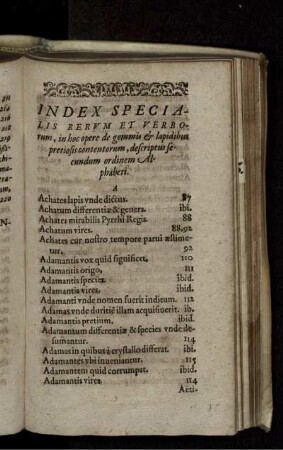 INDEX SPECIA-
LIS RERVM ET VERBO-
rum, in hoc opere de gemmis & lapidibus
pretiosis contentorum, descriptus se-
cundum ordinem Al-
phabeti.
A
Achates lapis vnde dictus. 87
Achatum differentiæ & genera. ibi.
Achates mirabilis Pyrrhi Regis. 88
Achatum vires. 88.92
Achates cur nostro tempore parui æstime-
tur. 92
Adamantis vox quid significet. 110
Adamantis origo. 111
Adamantis species. ibid.
Adamantis vires. ibid.
Adamanti vnde nomen fuerit inditum. 112
Adamas vnde duritiē illam acquisiuerit. ib.
Adamantis pretium. ibid.
Adamantum differentiæ & species vnde de-
sumantur. 114
Adamas in quibus à crystallo differat. ibi.
Adamantes vbi inueniantur. 115
Adamantem quid corrumpat. ibid.
Adamantis vires. 114